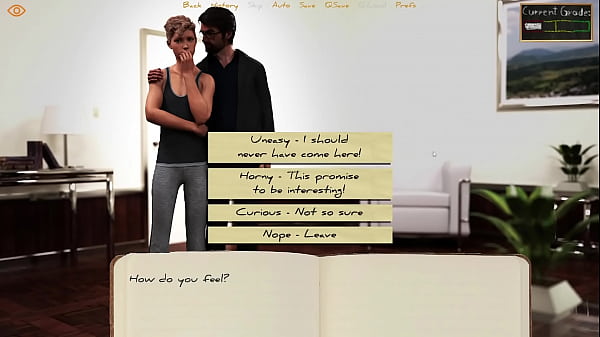 Back History Skip Auto Save QSave QLoad Prefs
Current Grade:
Uneasy - I should
never have come here!
Horny - This promise
to be interesting!
Curious - Not so sure
Nope - Leave
How do you feel?